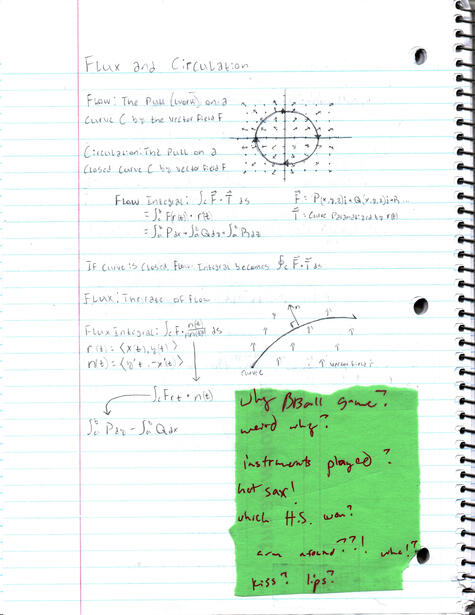 Flux and Circulation
Flow: The Pull (work) on a
curve C by the vector field F
Circulation: The Pull on a
closed curve C by vector field F
Flow Integral: ∫c F⃗ · T⃗ ds
= ∫ₐᵇ F(r(t)) · r'(t)
= ∫ₐᵇ P dx + ∫ₐᵇ Q dy + ∫ₐᵇ R dz
T⃗ = Curve Parametrized by r(t)
If curve is closed flow integral becomes ∮c F⃗ · T⃗ ds
Flux: The rate of flow
Flux Integral: ∫c F · n(t)/||n(t)|| ds
r(t) = ⟨x(t), y(t)⟩
n(t) = ⟨y't, -x'(t)⟩
n
curve
vector field F
∫c F r t · n(t)
∫ₐᵇ P dy - ∫ₐᵇ Q dx
why BBall game?
weird why?
instruments played?
hot sax!
which H.S. won?
arm around??! who!?
kiss? lips?